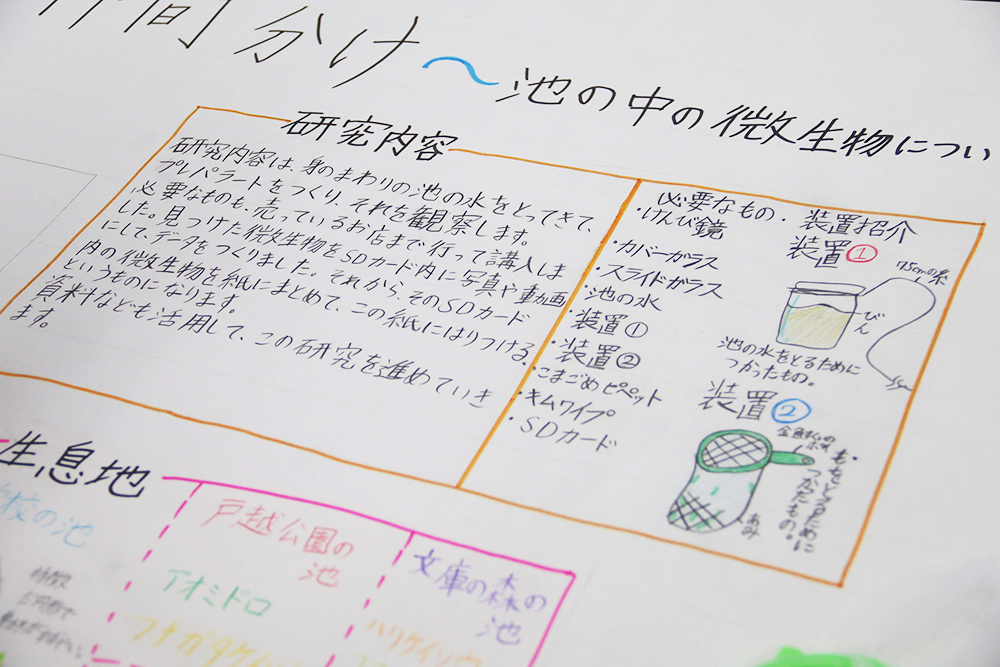 間分け〜池の中の微生物につい
研究内容
研究内容は、身のまわりの池の水をとってきて、
プレパラートをつくり、それを観察します。
必要なものも、売っているお店まで行って講入しま
した。見つけた微生物をSDカード内に写真や動画
にして、データをつくりました。それから、そのSDカード
内の微生物を紙にまとめて、この紙にはりつける。
というものになります。
資料なども活用して、この研究を進めていき
ます。
必要なもの・装置紹介
・けんび鏡
・カバーガラス
・スライドガラス
・池の水
・装置①
・装置②
・こまごめピペット
・キムワイプ
・SDカード
装置①
75cmの糸
びん
池の水をとるために
つかったもの。
装置②
金魚すくいの
もをとるために
つかったもの。
あみ
生息地
校の池
戸越公園の
池
アオミドロ
フナガタケイソウ
文庫の森の
池
ハリケイソウ